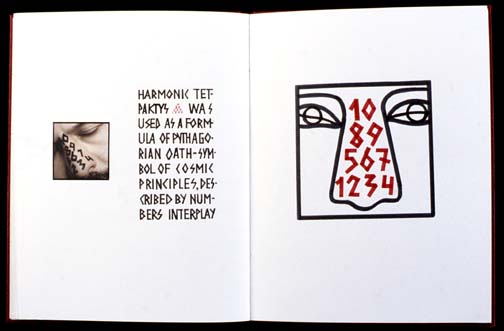 HARMONIC TET-
PAKTYS WAS
USED AS A FORM-
ULA OF PYTHAGO-
RIAN OATH-SYM-
BOL OF COSMIC
PRINCIPLES, DES-
CRIBED BY NUM-
BERS INTERPLAY
10
89
567
1234